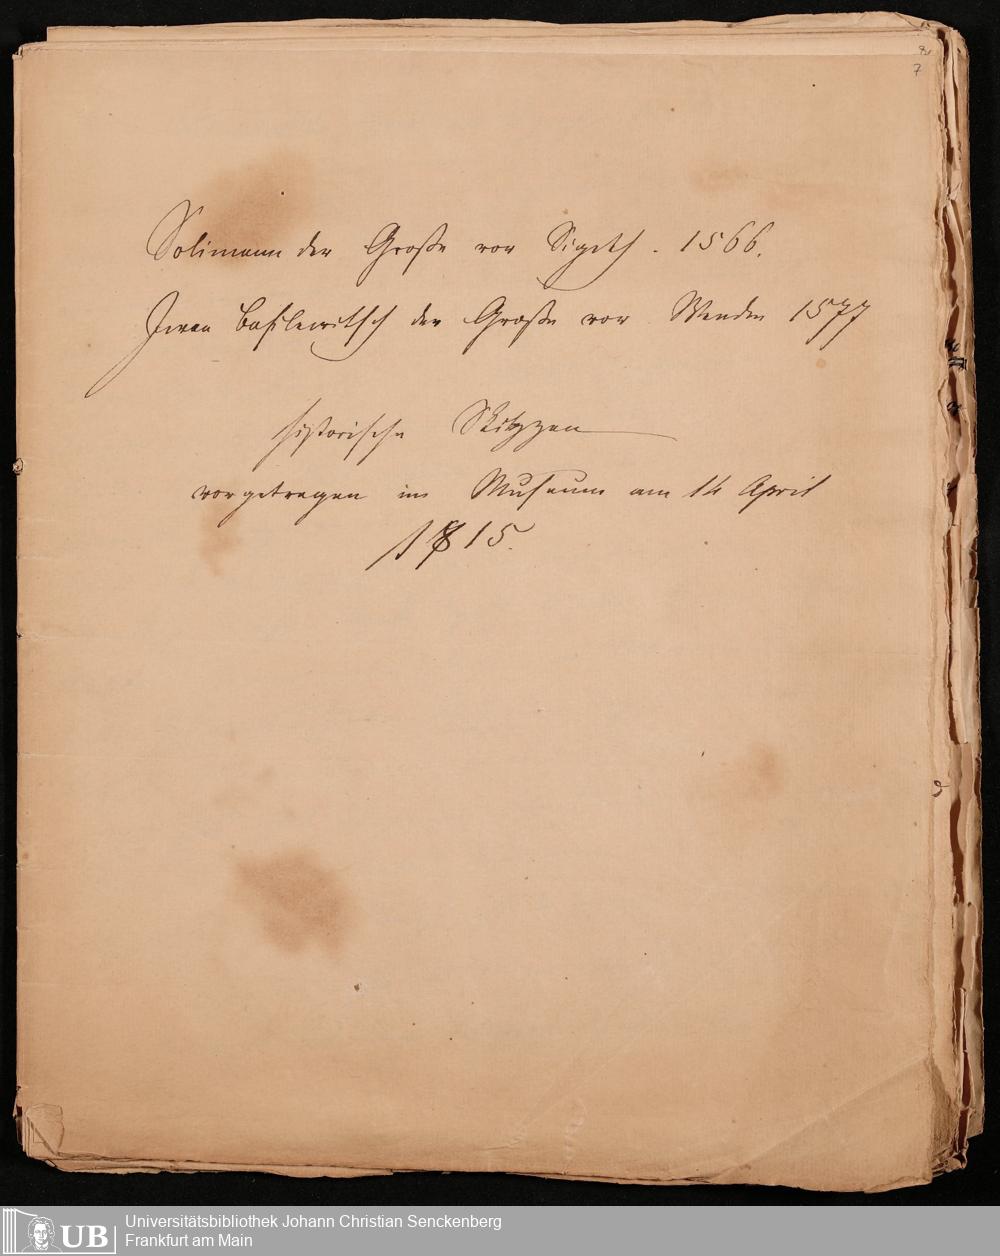 7
Solimann der Große vor Sigeth. 1566.
Iwan Basilewitsch der Große vor Wenden 1577
historische Skitzzen
vorgetragen im Museum am 14 April
1815.
UB
Universitätsbibliothek Johann Christian Senckenberg
Frankfurt am Main